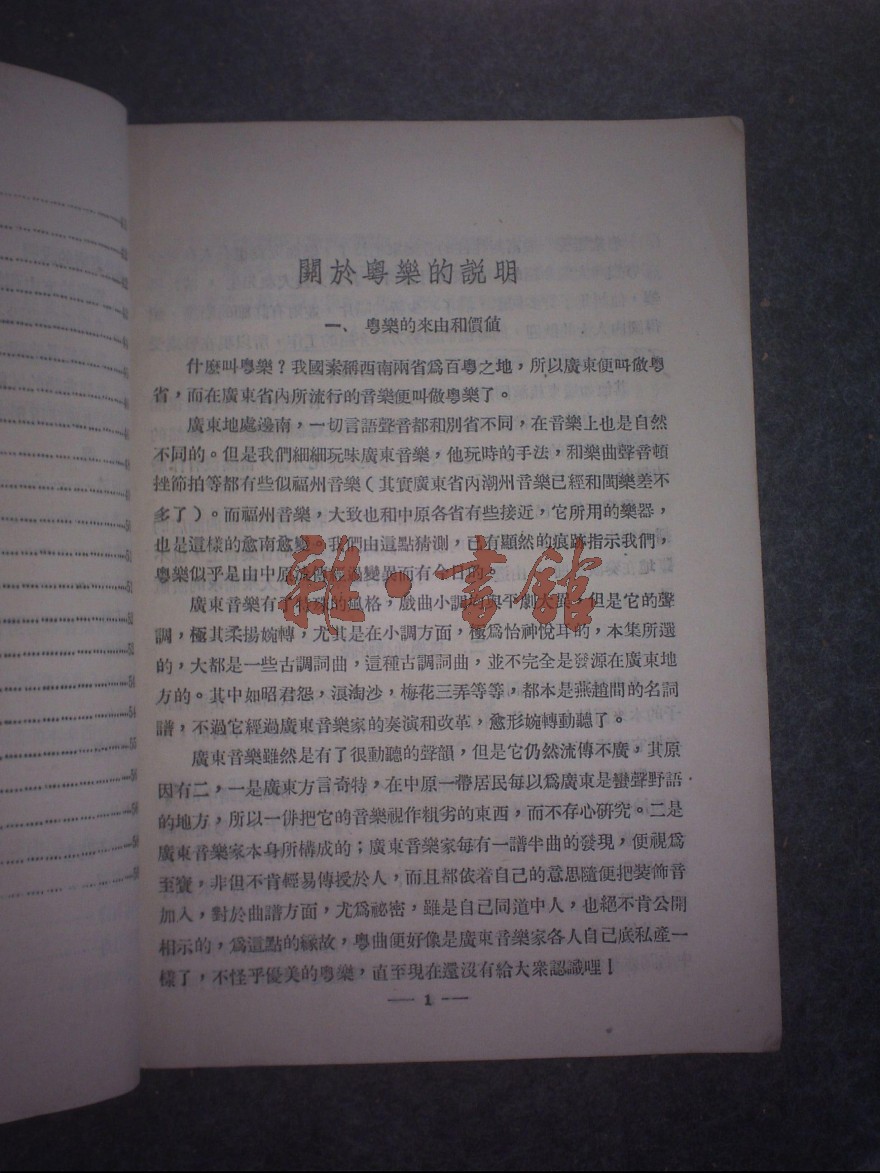 關於粵樂的說明
一、粵樂的來由和價值
什麼叫粵樂？我國素稱西南兩省爲百粵之地，所以廣東便叫做粵
省，而在廣東省內所流行的音樂便叫做粵樂了。
廣東地處邊南，一切言語聲音都和別省不同，在音樂上也是自然
不同的。但是我們細細玩味廣東音樂，他玩時的手法，和樂曲聲音頓
挫節拍等都有些似福州音樂（其實廣東省內潮州音樂已經和閩樂差不
多了）。而福州音樂，大致也和中原各省有些接近，它所用的樂器，
也是這樣的愈南愈變。我們由這點猜測，已有顯然的痕跡指示我們，
粵樂似乎是由中原 變異而有今日的。
廣東音樂有了特殊的風格，戲曲小調均與平劇大異，但是它的聲
調，極其柔揚婉轉，尤其是在小調方面，極爲怡神悅耳的，本集所選
的，大都是一些古調詞曲，這種古調詞曲，並不完全是發源在廣東地
方的。其中如昭君怨，浪淘沙，梅花三弄等等，都本是燕越間的名詞
譜，不過它經過廣東音樂家的奏演和改革，愈形婉轉動聽了。
廣東音樂雖然是有了很動聽的聲韻，但是它仍然流傳不廣，其原
因有二，一是廣東方言奇特，在中原一帶居民每以爲廣東是蠻聲野語
的地方，所以一倂把它的音樂視作粗劣的東西，而不存心研究。二是
廣東音樂家本身所構成的；廣東音樂家每有一譜半曲的發現，便視爲
至寶，非但不肯輕易傳授於人，而且都依着自己的意思隨便把裝飾音
加入，對於曲譜方面，尤爲祕密，雖是自己同道中人，也絕不肯公開
相示的，爲這點的緣故，粵曲便好像是廣東音樂家各人自己底私產一
樣了，不怪乎優美的粵樂，直至現在還沒有給大衆認識哩！
— 1 —
雜·書館